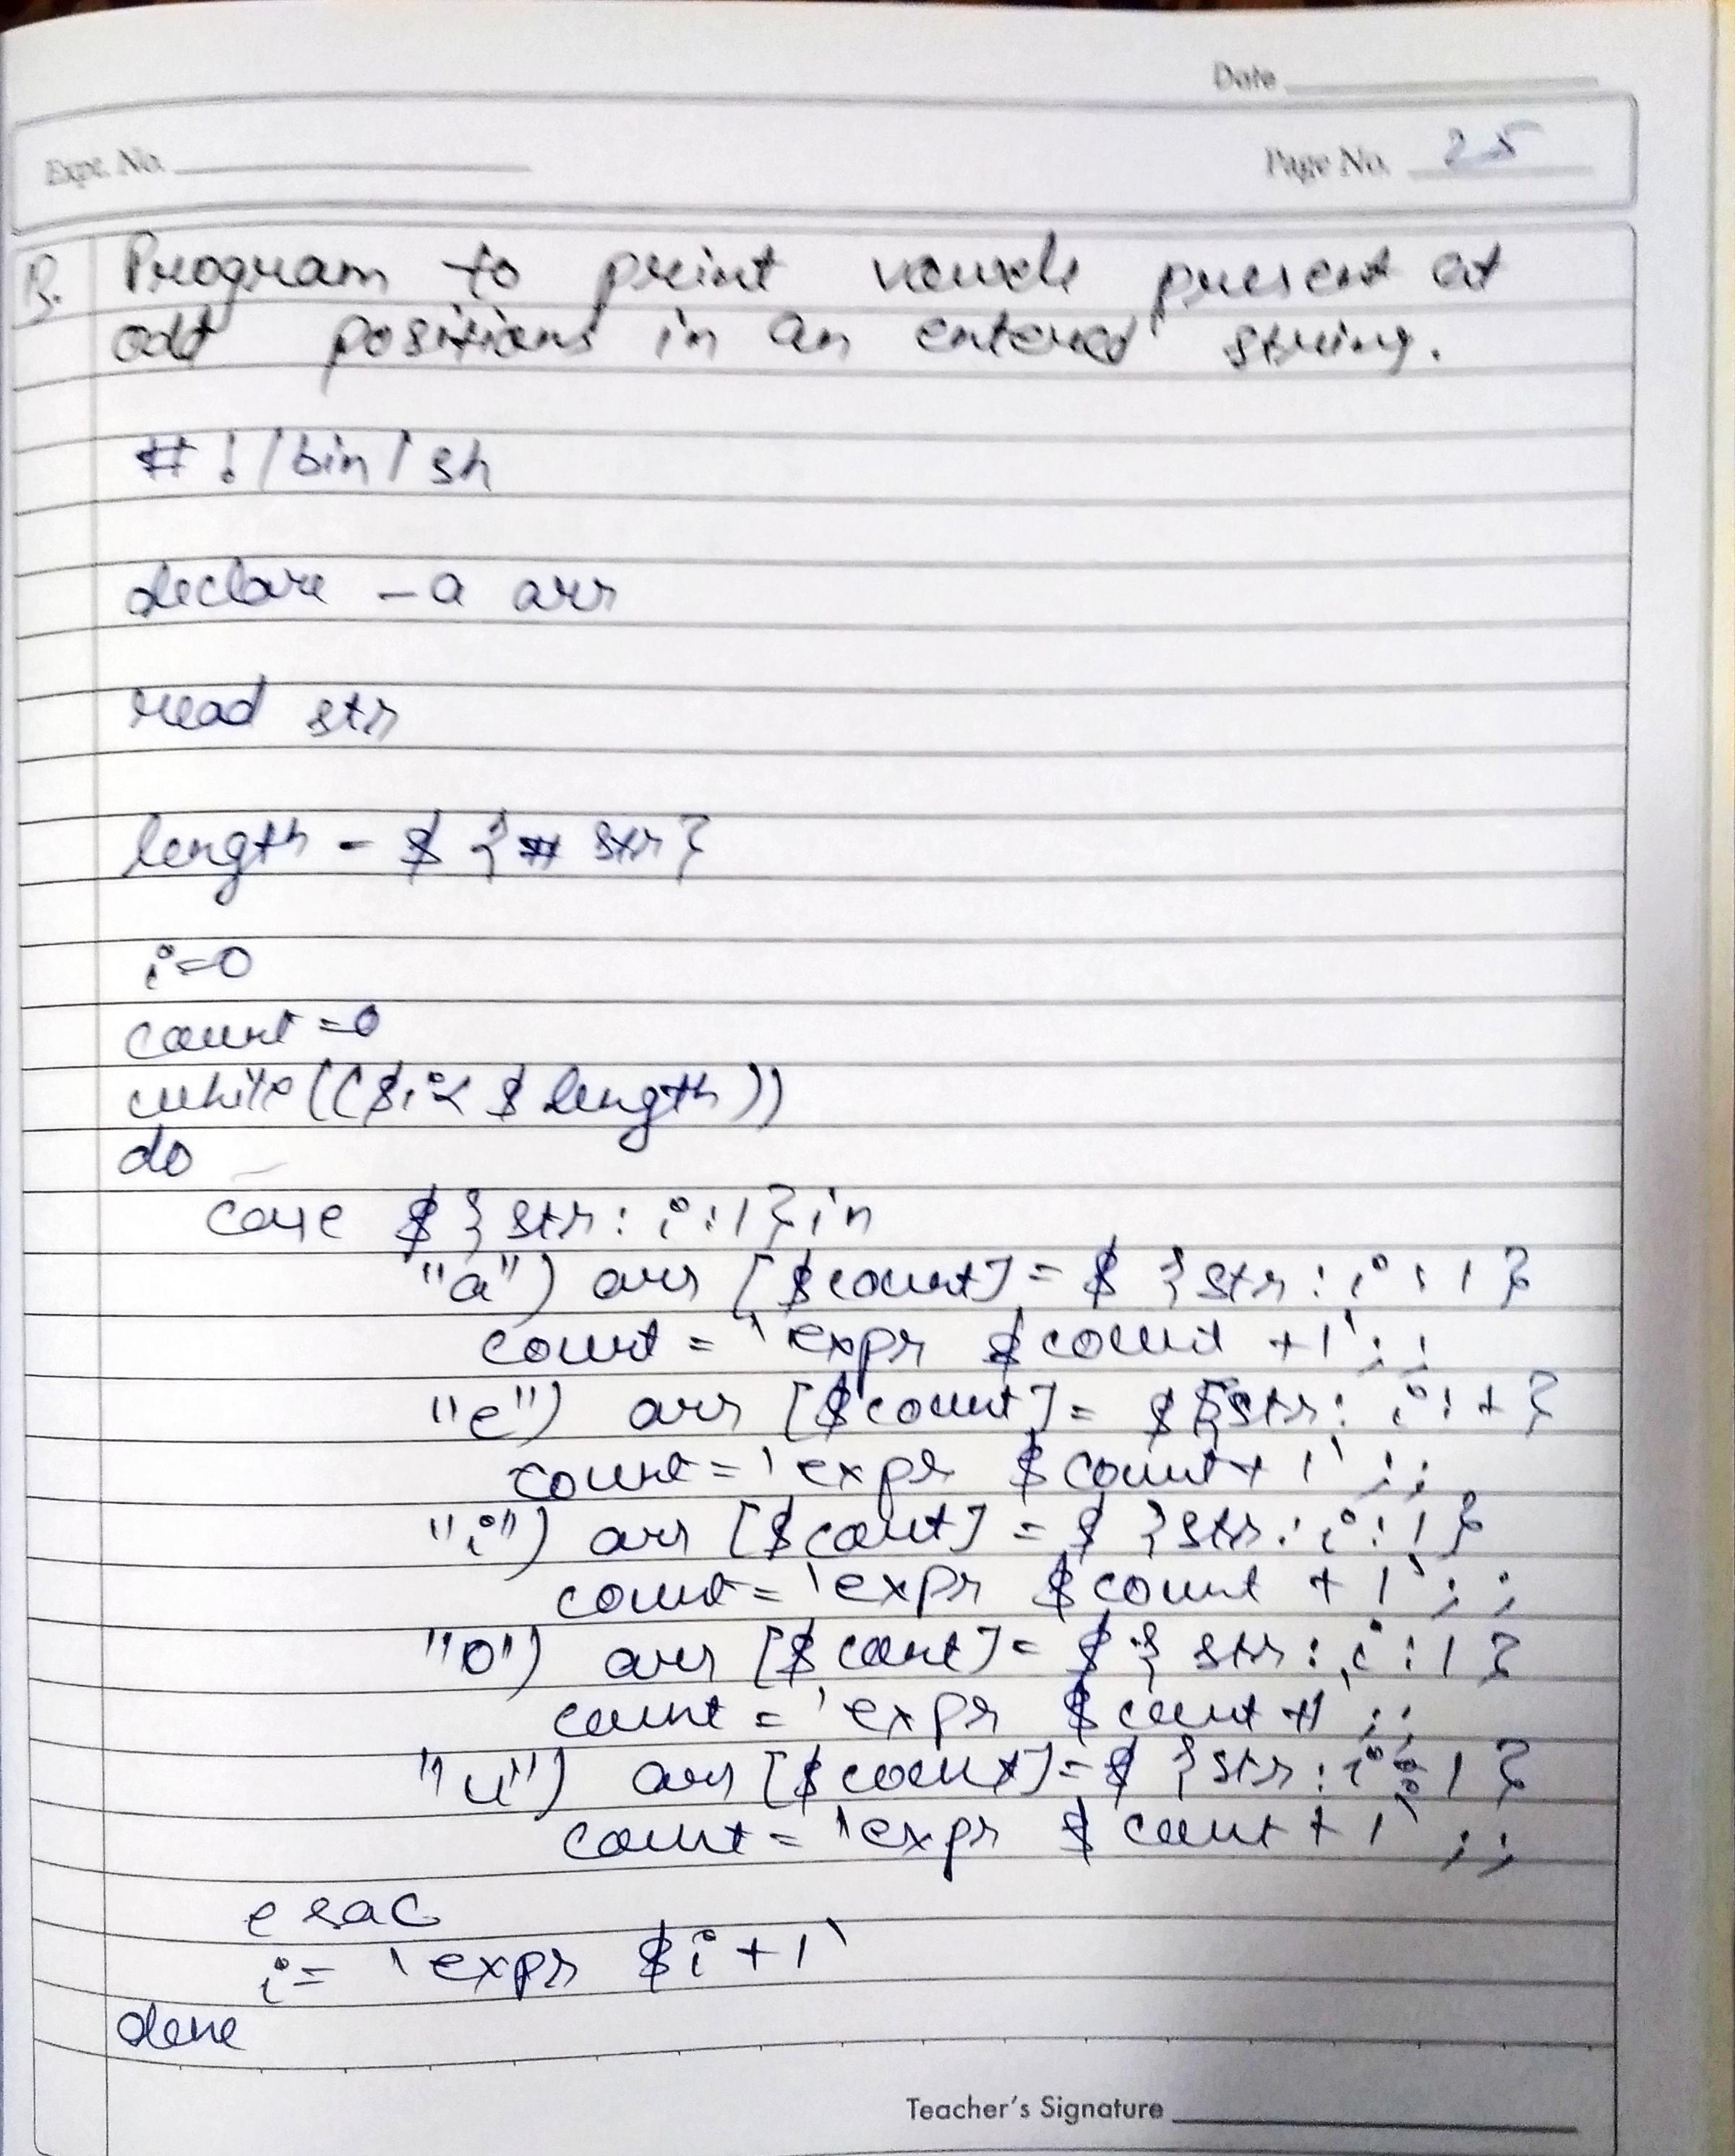 Date
Expt. No.
Page No. 25
Q. Program to print vowels present at
odd positions in an entered string.
#!/bin/sh
declare -a arr
read str
length = ${# str}
i=0
count=0
while(($i< $length))
do
case ${str:i:1}in
"a") arr [$count]= ${str:i:1}
count = `expr $count +1`;;
"e") arr [$count]= ${str:i:1}
count=`expr $count+1`;;
"i") arr [$count] = ${str:i:1}
count=`expr $count + 1`;;
"o") arr [$count]= ${str:i:1}
count = `expr $count +1`;;
"u") arr [$count]=${str:i:1}
count=`expr $count+1`;;
esac
i= `expr $i+1`
done
Teacher's Signature